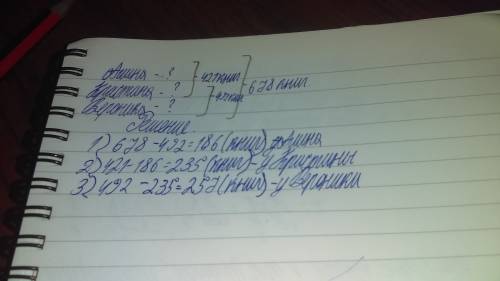 Амина - ?
Кристина - ? } 421 книг } 678 книг
Вероника - ?
Решение
1) 678-492=186(книг) Амина
2) 421-186=235(книг)-у Кристины
3) 492-235=257(книг)-у Вероники